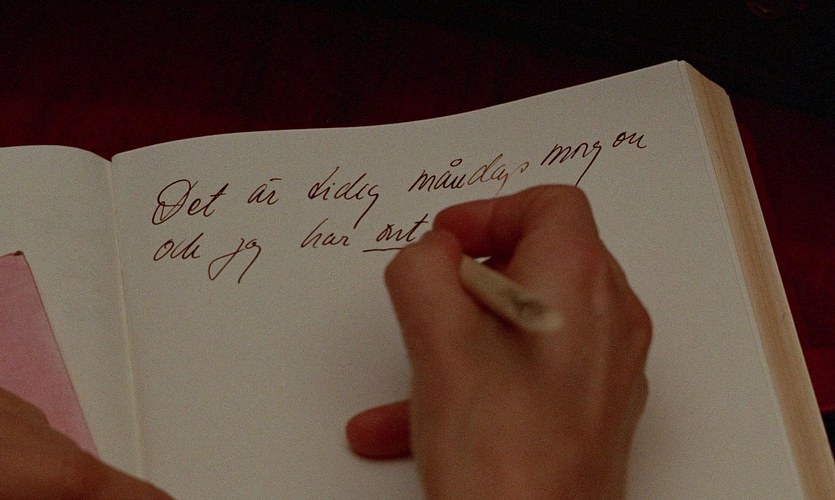 Det är tidig måndags morgon
och jag har ont